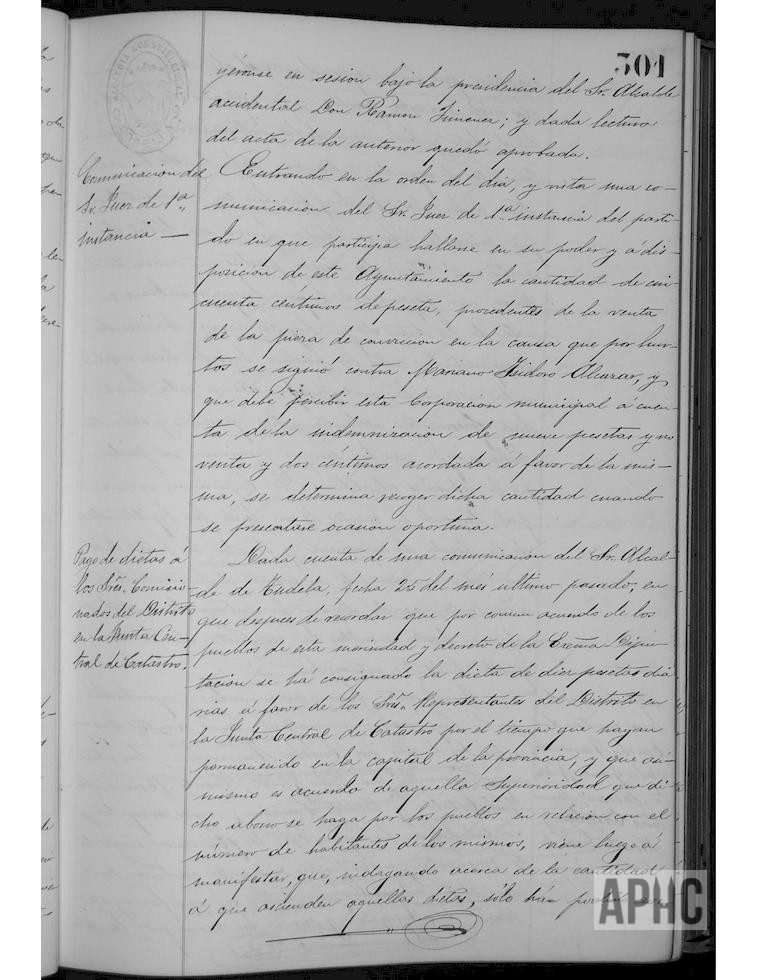 301
ALCALDIA CONSTITUCIONAL
CORELLA
yéronse en sesion bajo la presidencia del Sr. Alcalde
accidental Don Ramon Jimenez; y dada lectura
del acta de la anterior quedó aprobada.
Comunicacion del
Sr. Juez de 1ª
instancia —
Entrando en la orden del dia, y vista una co-
municacion del Sr. Juez de 1ª instancia del parti-
do en que participa hallarse en su poder y a dis-
posicion de este Ayuntamiento la cantidad de cin-
cuenta céntimos de peseta, procedentes de la venta
de la pieza de conviccion en la causa que por hur-
tos se siguió contra Mariano Isidoro Alcazar, y
que debe percibir esta Corporacion municipal á cuen-
ta de la indemnizacion de nueve pesetas y no
venta y dos céntimos acordada á favor de la mis-
ma, se determina recoger dicha cantidad cuando
se presentare ocasion oportuna.
Pago de dietas á
los Sres. Comisio-
nados del Distrito
en la Junta Cen-
tral de Catastro.
Dada cuenta de una comunicacion del Sr. Alcal-
de de Tudela, fecha 25 del mes ultimo pasado, en
que despues de recordar que por comun acuerdo de los
pueblos de esta merindad y decreto de la Excma Dipu-
tacion se há consignado la dieta de diez pesetas dia
rias á favor de los Sres. Representantes del Distrito en
la Junta Central de Catastro por el tiempo que hayan
permanecido en la capital de la provincia, y que asi-
mismo es acuerdo de aquella Superioridad que di
cho abono se haga por los pueblos en relacion con el
número de habitantes de los mismos, viene luego á
manifestar, que, indagando acerca de la cantidad
á que ascienden aquellas dietas, sólo há podido
APHC